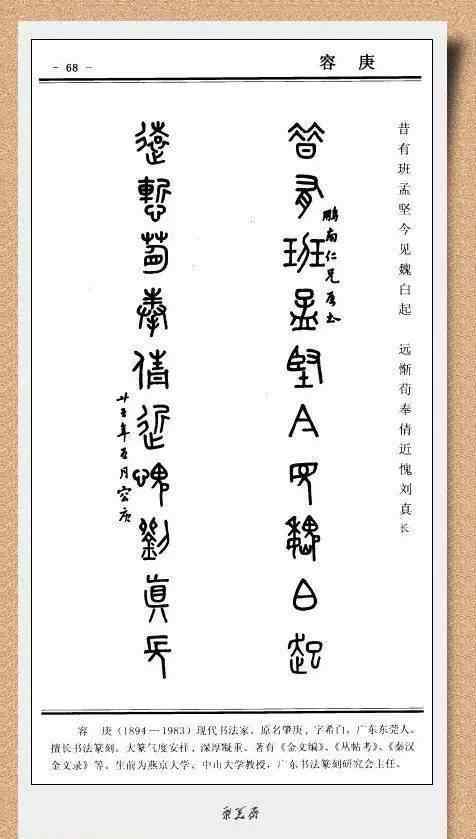 - 68 -
容 庚
昔有班孟坚今见魏白起 远惭荀奉倩近愧刘真长
昔有班孟堅今見魏白起
仁兄屬
遠慙荀奉倩近愧劉眞長
廿五年五月容庚
容 庚(1894—1983)现代书法家。原名肇庚,字希白,广东东莞人。
擅长书法篆刻。大篆气度安祥,深厚凝重。著有《金文编》、《丛帖考》、《秦汉
金文录》等。生前为燕京大学、中山大学教授,广东书法篆刻研究会主任。